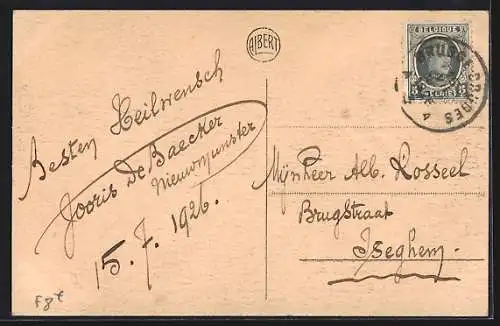 ALBERT
BELGIQUE
Besten Heilwensch
Jooris De Baecker
Nieuwmunster
15.7.1926.
Mijnheer Alb. Rosseel
Brugstraat
Iseghem.